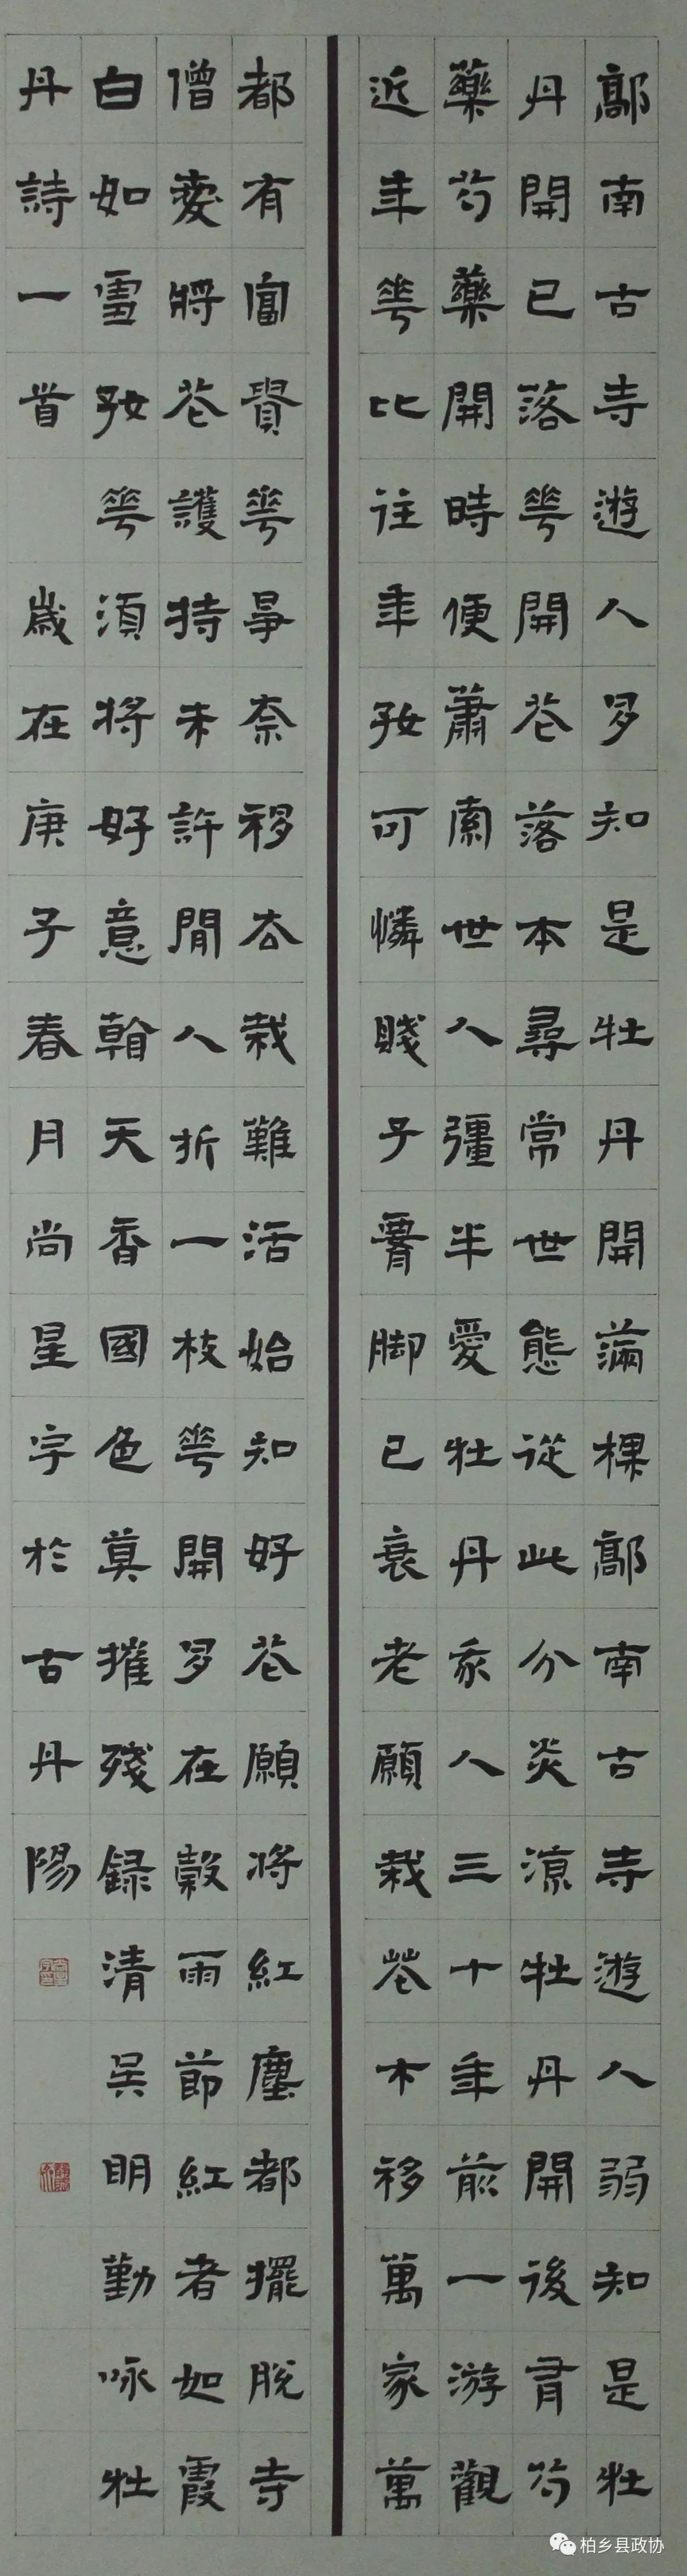 鄗南古寺遊人多知是牡丹開滿棵鄗南古寺遊人弱知是牡
丹開已落花開花落本尋常世態從此分炎涼牡丹開後有芍
藥芍藥開時便蕭索世人彊半愛牡丹我人三十年前一游觀
近年花比往年好可憐賤子腰脚已衰老願栽花木移萬家萬
都有富貴花爭奈移去栽難活始知好花願將紅塵都擺脫寺
僧愛將花護持未許閒人折一枝花開多在穀雨節紅者如霞
白如雪好花須將好意翰天香國色莫摧殘録清吳明勤咏牡
丹詩一首 歲在庚子春月尚星字於古丹陽
柏乡县政协